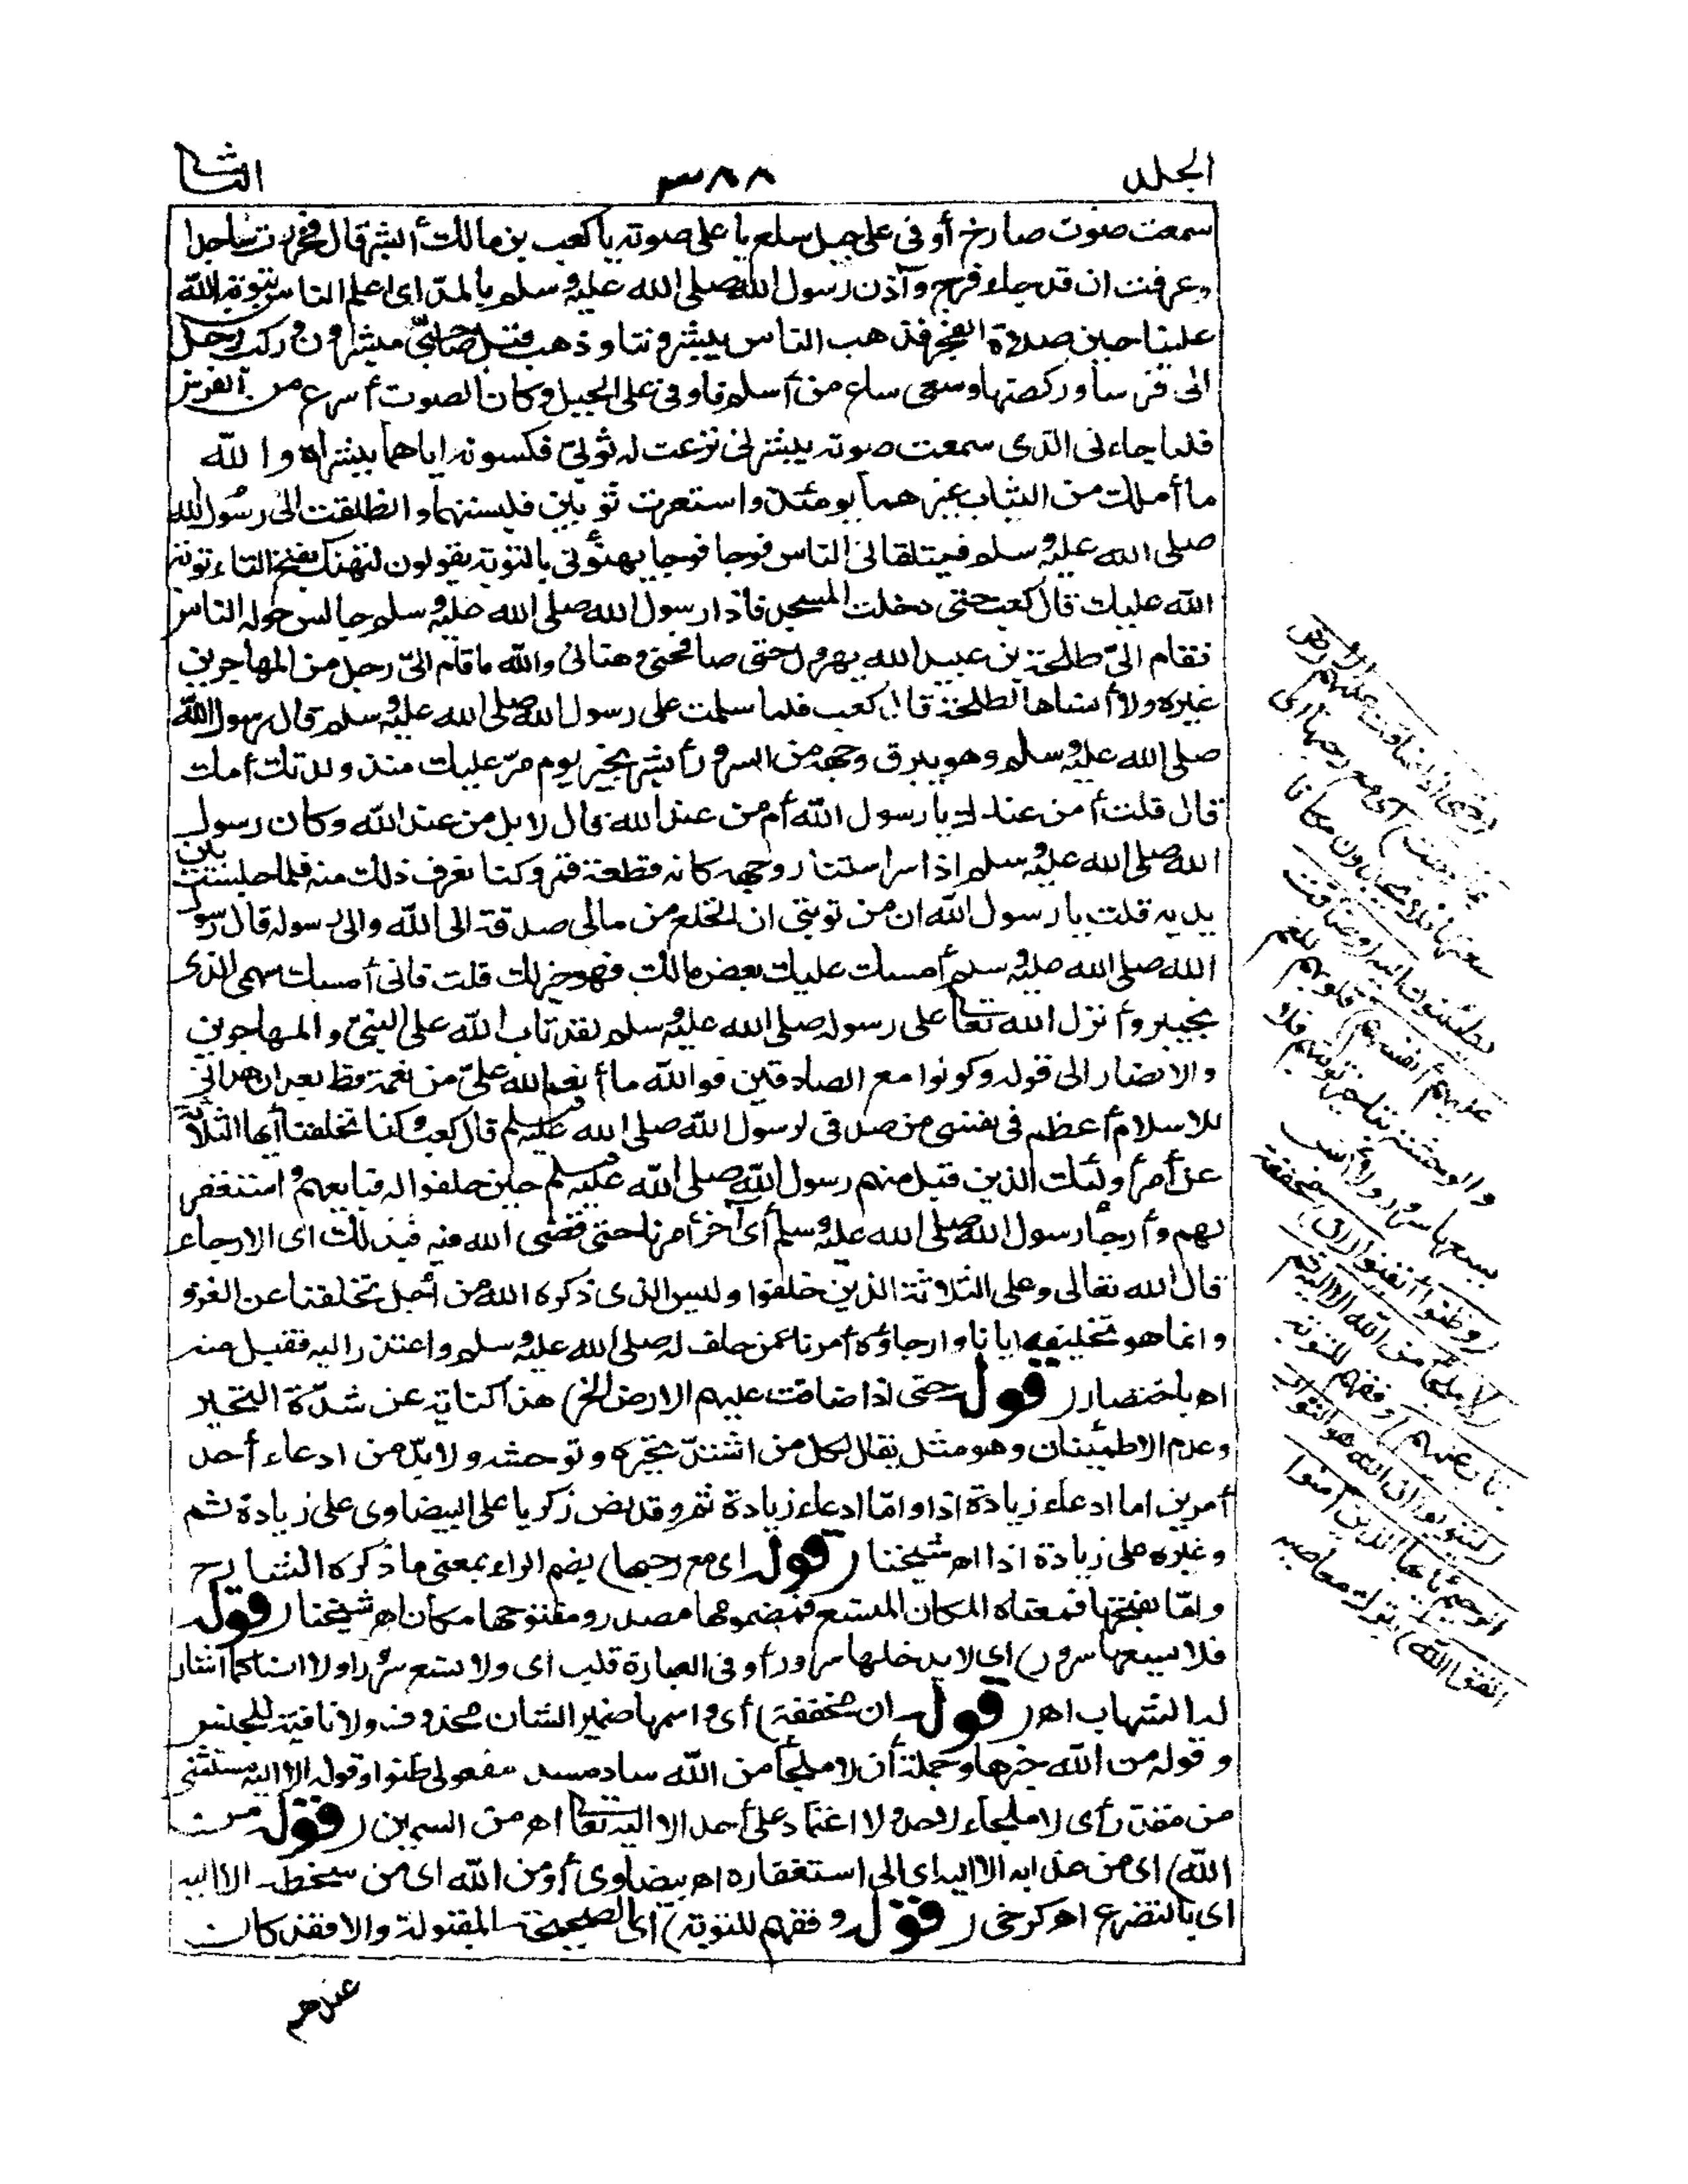 الجلد ٣٨٨ الثانى
سمعت صوت صارخ أوفى على جبل سلع يا على صوته يا كعب بن مالك أبشر قال فخررت ساجدا
وعرفت ان قد جاء فرج وآذن رسول الله صلى الله عليه وسلم بالمد اى اعلم الناس بتوبة الله
علينا حين صلاة الفجر فذهب الناس يبشروننا وذهب قبل صاحبىّ مبشرون وركب رجل
الى فرسا وركضها وسعى ساع من أسلم فأوفى على الجبل وكان الصوت أسرع من الفرس
فلما جاءنى الذى سمعت صوته يبشرنى نزعت له ثوبىّ فكسوته اياهما ببشراه والله
ما أملك من الثياب غيرهما يومئذ واستعرت ثوبين فلبستهما وانطلقت الى رسول الله
صلى الله عليه وسلم فيتلقانى الناس فوجا فوجا يهنؤنى بالتوبة يقولون لتهنك بفتح التاء توبة
الله عليك قال كعب حتى دخلت المسجد فاذا رسول الله صلى الله عليه وسلم جالس حوله الناس
فقام الىّ طلحة بن عبيد الله يهرول حتى صافحنى وهنانى والله ما قام الىّ رجل من المهاجرين
غيره ولا أنساها لطلحة قال كعب فلما سلمت على رسول الله صلى الله عليه وسلم قال رسول الله
صلى الله عليه وسلم وهو يبرق وجهه من السرور أبشر بخير يوم مرّ عليك منذ ولدتك أمك
قال قلت أمن عندك يا رسول الله أم من عند الله قال لا بل من عند الله وكان رسول
الله صلى الله عليه وسلم اذا سر استنار وجهه كانه قطعة قمر وكنا نعرف ذلك منه فلما جلست بين
يديه قلت يا رسول الله ان من توبتى ان انخلع من مالى صدقة الى الله والى رسوله قال رسول
الله صلى الله عليه وسلم أمسك عليك بعض مالك فهو خير لك قلت فانى أمسك سهمى الذى
بخيبر وأنزل الله تعالى على رسوله صلى الله عليه وسلم لقد تاب الله على النبىّ والمهاجرين
والانصار الى قوله وكونوا مع الصادقين فوالله ما أنعم الله علىّ من نعمة قط بعد ان هدانى
للاسلام أعظم فى نفسى من صدقى لرسول الله صلى الله عليه وسلم قال كعب وكنا تخلفنا أيها الثلاثة
عن أمر أولئك الذين قبل منهم رسول الله صلى الله عليه وسلم حين حلفوا له فبايعهم واستغفر
لهم وأرجأ رسول الله صلى الله عليه وسلم أى آخر أمرنا حتى قضى الله فيه فبذلك اى الارجاء
قال الله تعالى وعلى الثلاثة الذين خلفوا وليس الذى ذكره الله من أجل تخلفنا عن الغزو
وانما هو تخليفه ايانا وارجاؤه أمرنا عمن حلف له صلى الله عليه وسلم واعتذر اليه فقبل منه
اه باختصار (قوله حتى اذا ضاقت عليهم الارض الخ) هذا كناية عن شدّة التحير
وعدم الاطمئنان وهو مثل يقال لكل من اشتدّ تحيره وتوحشه ولا بدّ من ادعاء أحد
أمرين اما ادعاء زيادة اذا واما ادعاء زيادة ثم وقد نص زكريا على البيضاوى على زيادة ثم
وغيره على زيادة اذا اه شيخنا (قوله اى مع رحبها) بضم الراء بمعنى ما ذكره الشارح
وامّا بفتحها فمعناه المكان المتسع فمضمومها مصدر ومفتوحها مكان اه شيخنا (قوله
فلا يسعها سرور) اى لا يدخلها سرور أو فى العبارة قلب اى ولا تسع سرورا ولا انسا كما أشار
لـه الشهاب اه (قوله ان مخففة) أى واسمها ضمير الشان محذوف ولا نافية للجنس
وقوله من الله خبرها وجملة أن لا ملجأ من الله ساد مسد مفعولى ظنوا وقوله الا اليه مستثنى
من مقدر أى لا ملجاء لاحد ولا اعتماد على أحد الا اليه تعالى اه من السمين (قوله من
الله) اى من عذابه الا اليه اى الى استغفاره اه بيضاوى أو من الله اى من سخطه الا اليه
اى بالتضرع اه كرخى (قوله وفقهم للتوبة) أى الصحيحة المقبولة والا فقد كان
عندهم
(حتى اذا ضاقت عليهم الارض
بما رحبت) أى مع رحبها اى
سعتها فلا يجدون مكانا
يطمئنون اليه (وضاقت
عليهم أنفسهم) قلوبهم للغم
والوحشة بتاخير توبتهم فلا
يسعها سرور ولا أنس
(وظنوا) أيقنوا (ان) مخففة
(لا ملجأ من الله الا اليه ثم
تاب عليهم) وفقهم للتوبة
(ليتوبوا ان الله هو التواب
الرحيم يا أيها الذين آمنوا
اتقوا الله) بترك معاصيه